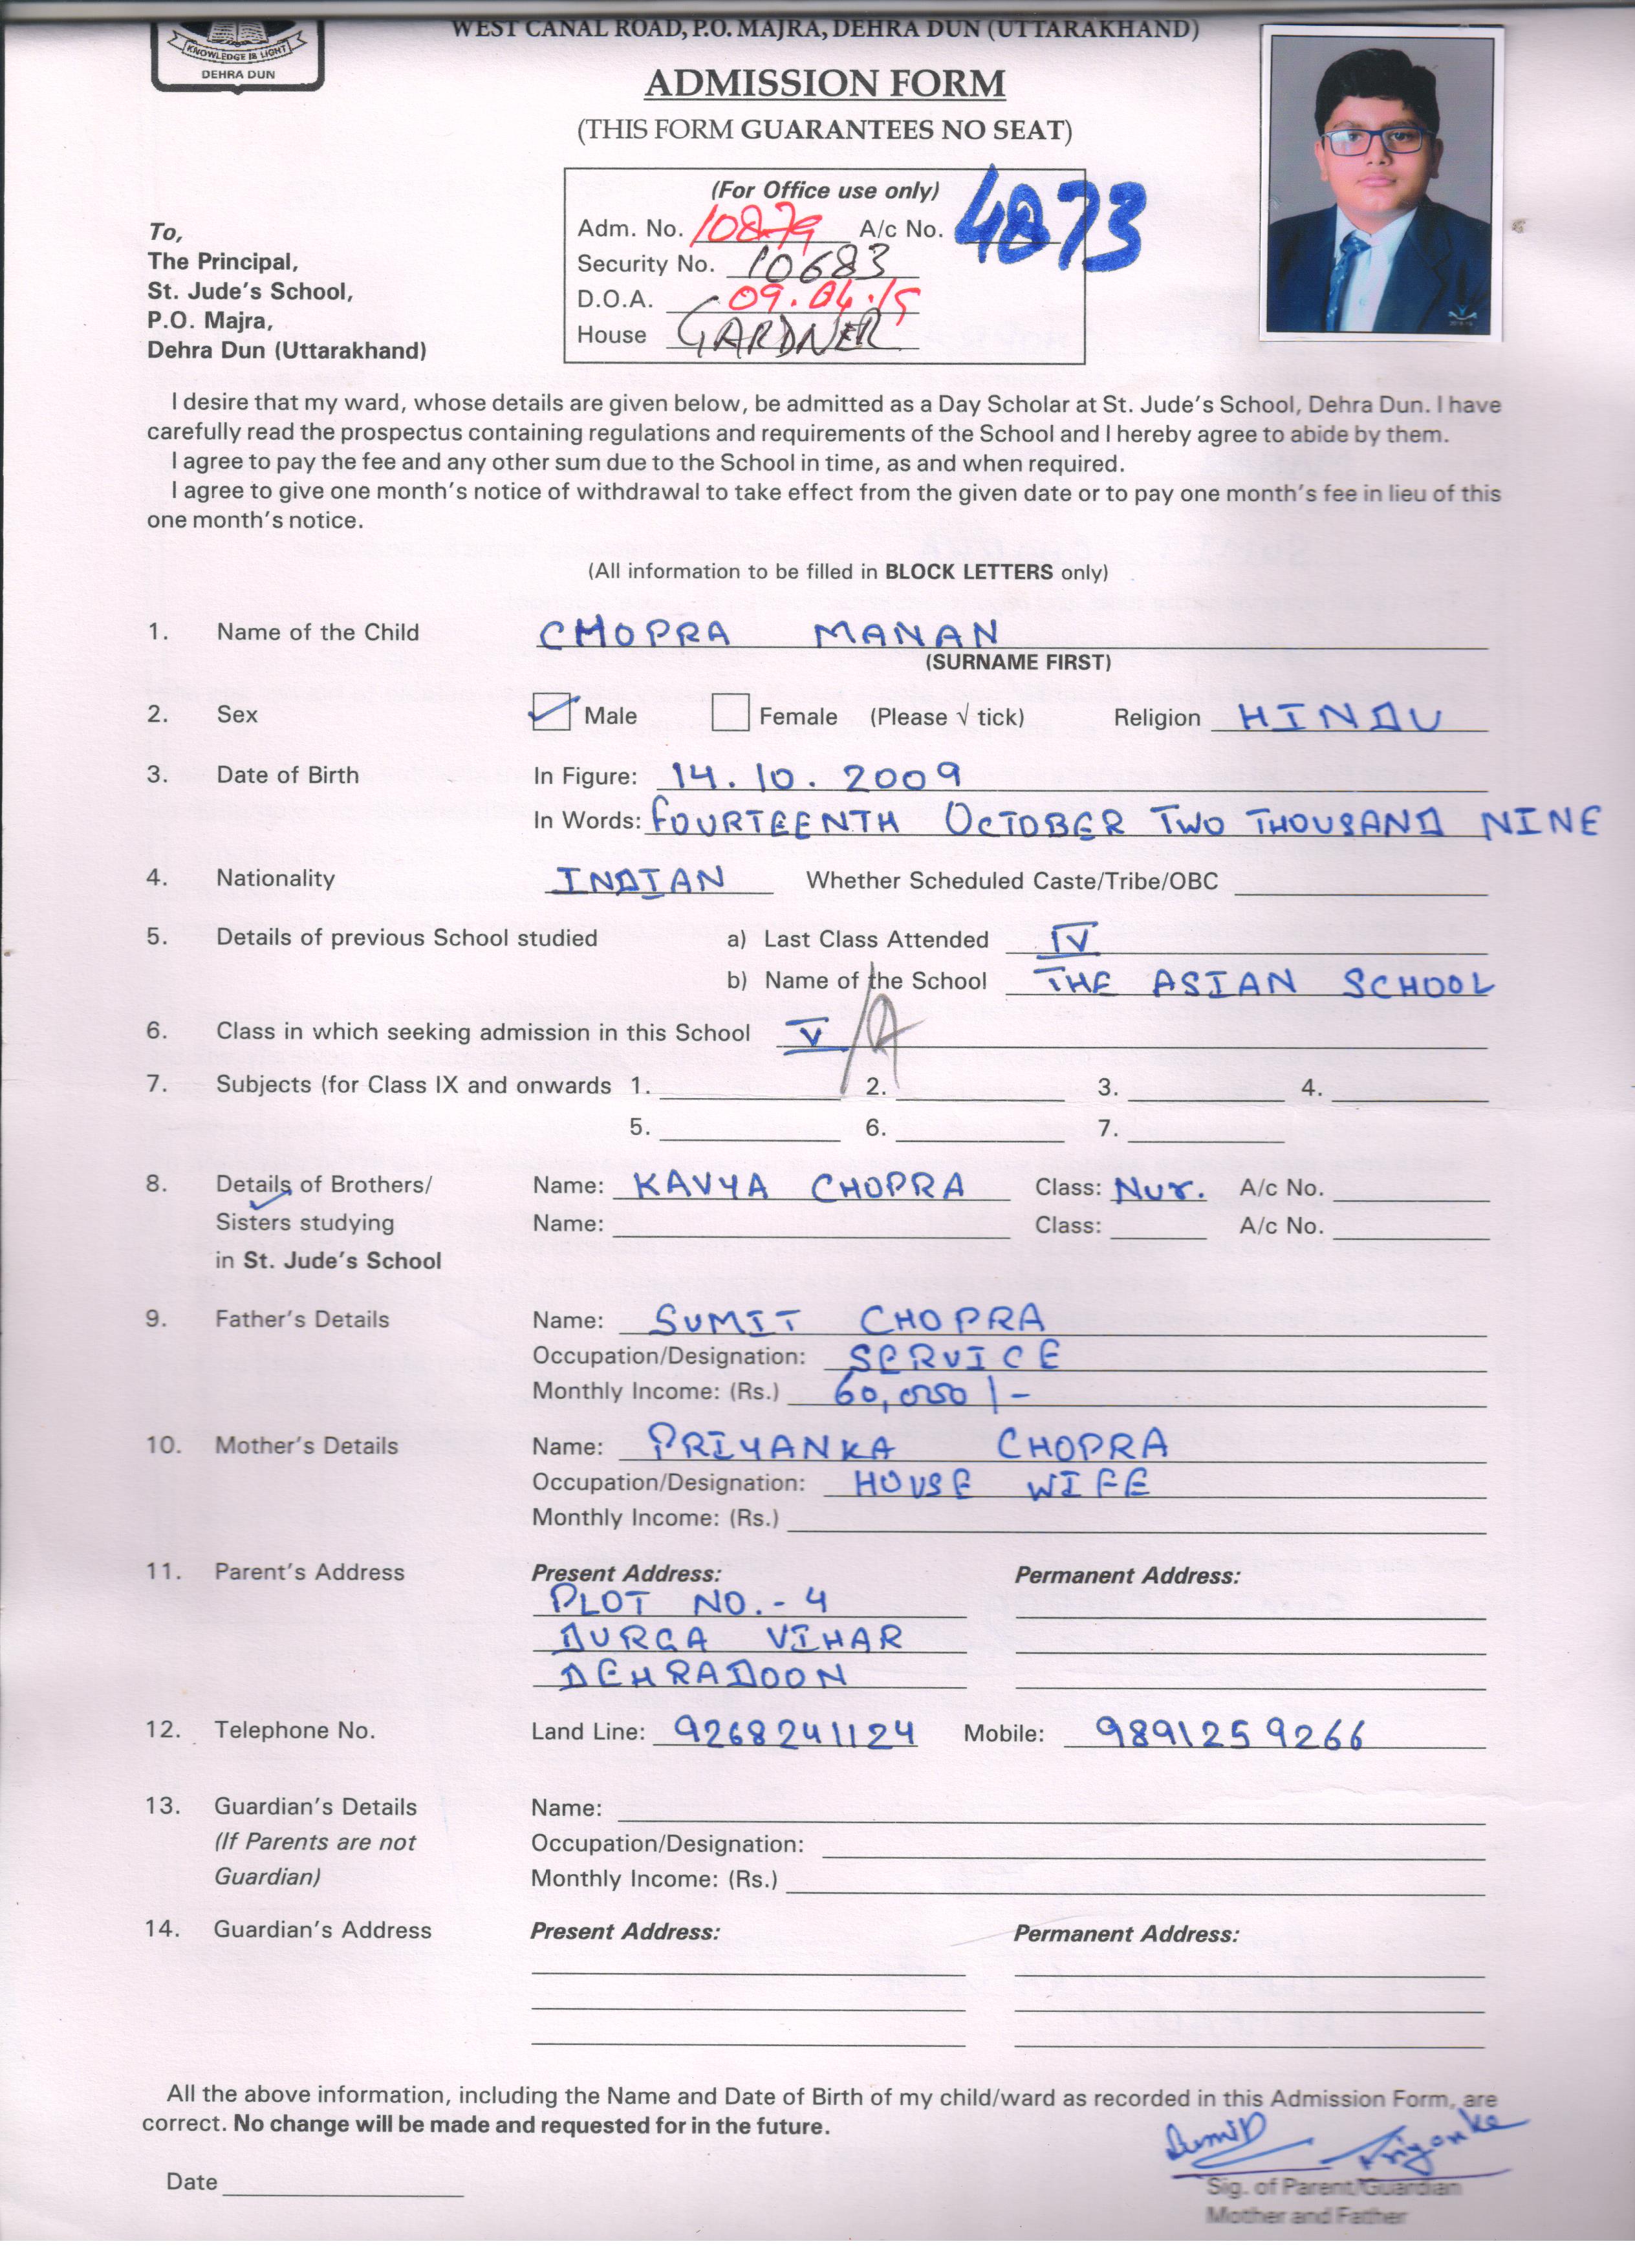 KNOWLEDGE IS LIGHT
DEHRA DUN
WEST CANAL ROAD, P.O. MAJRA, DEHRA DUN (UTTARAKHAND)
ADMISSION FORM
(THIS FORM GUARANTEES NO SEAT)
(For Office use only)
Adm. No. 10879 A/c No. 4873
Security No. 10683
D.O.A. 09.04.19
House GARDNER
To,
The Principal,
St. Jude's School,
P.O. Majra,
Dehra Dun (Uttarakhand)
I desire that my ward, whose details are given below, be admitted as a Day Scholar at St. Jude's School, Dehra Dun. I have
carefully read the prospectus containing regulations and requirements of the School and I hereby agree to abide by them.
I agree to pay the fee and any other sum due to the School in time, as and when required.
I agree to give one month's notice of withdrawal to take effect from the given date or to pay one month's fee in lieu of this
one month's notice.
(All information to be filled in BLOCK LETTERS only)
1. Name of the Child CHOPRA MANAN
(SURNAME FIRST)
2. Sex Male Female (Please √ tick) Religion HINDU
3. Date of Birth In Figure: 14.10.2009
In Words: FOURTEENTH OCTOBER TWO THOUSAND NINE
4. Nationality INDIAN Whether Scheduled Caste/Tribe/OBC
5. Details of previous School studied a) Last Class Attended IV
b) Name of the School THE ASIAN SCHOOL
6. Class in which seeking admission in this School V/A
7. Subjects (for Class IX and onwards 1. 2. 3. 4.
5. 6. 7.
8. Details of Brothers/ Name: KAVYA CHOPRA Class: Nur. A/c No.
Sisters studying Name: Class: A/c No.
in St. Jude's School
9. Father's Details Name: SUMIT CHOPRA
Occupation/Designation: SERVICE
Monthly Income: (Rs.) 60,000/-
10. Mother's Details Name: PRIYANKA CHOPRA
Occupation/Designation: HOUSE WIFE
Monthly Income: (Rs.)
11. Parent's Address Present Address: Permanent Address:
PLOT NO.-4
DURGA VIHAR
DEHRADOON
12. Telephone No. Land Line: 9268241124 Mobile: 9891259266
13. Guardian's Details Name:
(If Parents are not Occupation/Designation:
Guardian) Monthly Income: (Rs.)
14. Guardian's Address Present Address: Permanent Address:
All the above information, including the Name and Date of Birth of my child/ward as recorded in this Admission Form, are
correct. No change will be made and requested for in the future.
Sumit Priyanka
Date Sig. of Parent/Guardian
Mother and Father